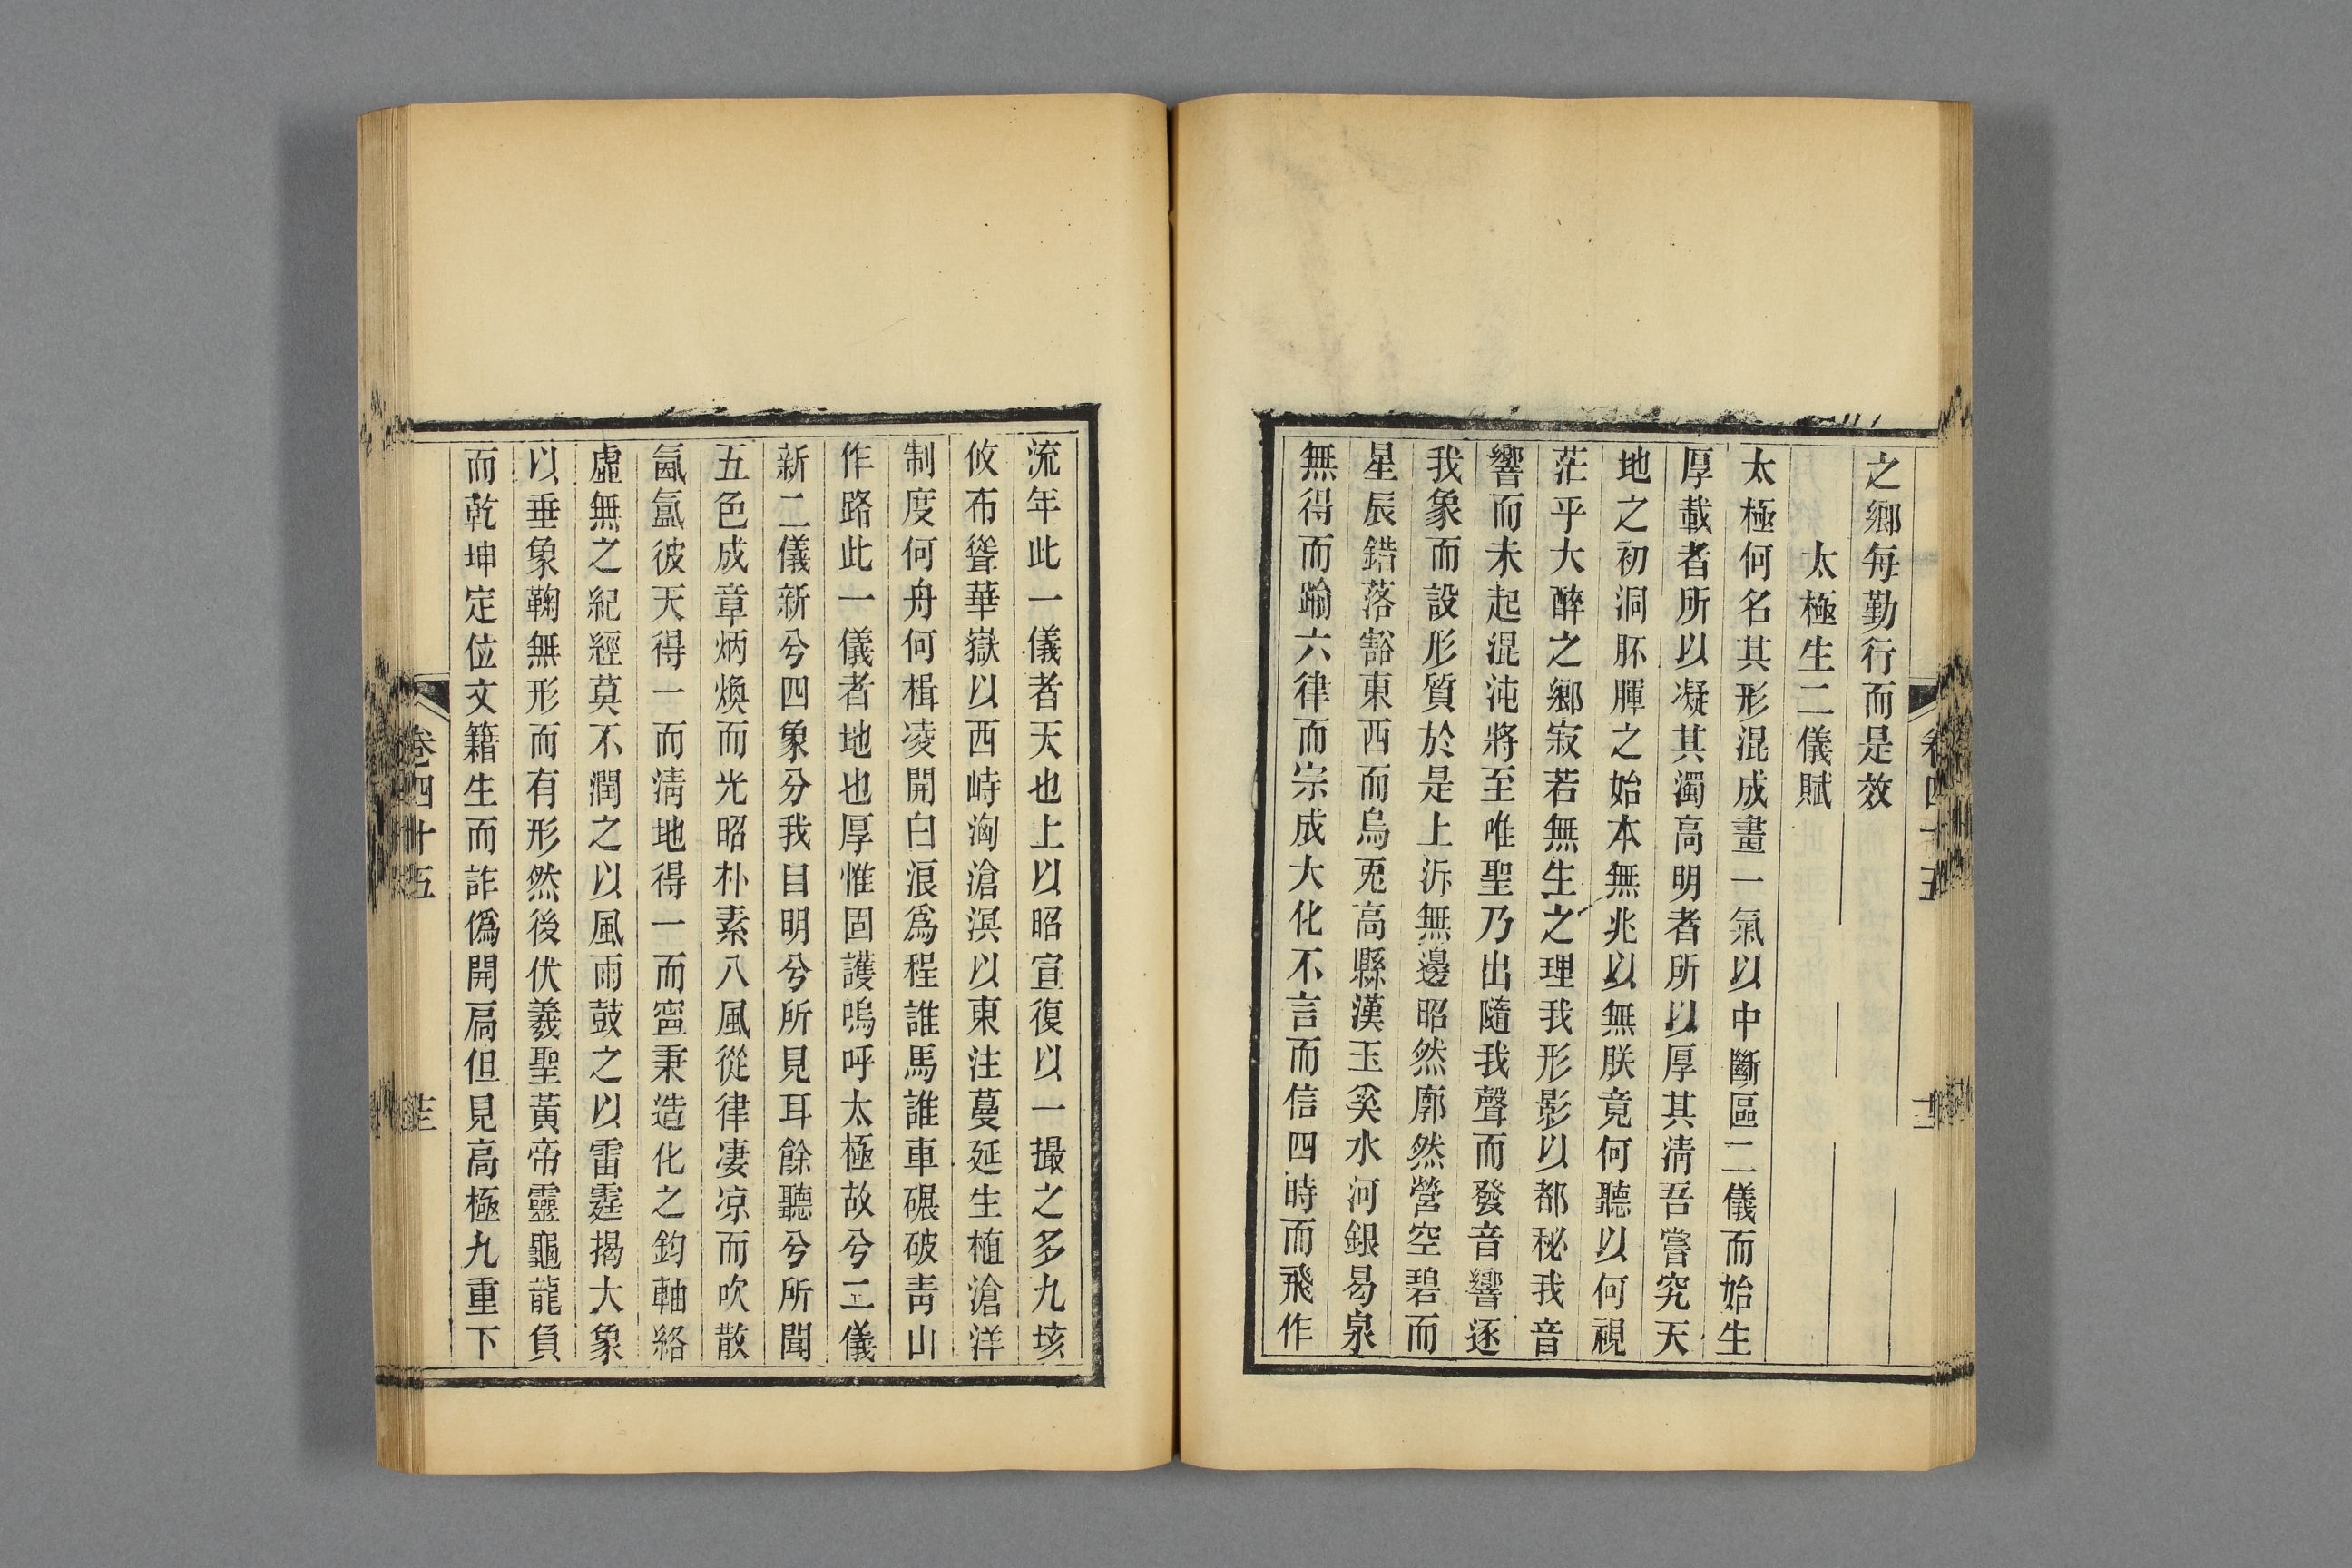 之鄉每勤行而是效
太極生二儀賦
太極何名其形混成畫一氣以中斷區二儀而始生
厚載者所以凝其濁高明者所以厚其淸吾嘗究天
地之初洞胚腪之始本無兆以無朕竟何聽以何視
茫乎大醉之鄉寂若無生之理我形影以都秘我音
響而未起混沌將至唯聖乃出隨我聲而發音響逐
我象而設形質於是上泝無邊昭然廓然營空碧而
星辰錯落豁東西而烏兎高縣漢玉奚水河銀曷泉
無得而踰六律而宗成大化不言而信四時而飛作
流年此一儀者天也上以昭宣復以一撮之多九垓
攸布聳華嶽以西峙洶滄溟以東注蔓延生植滄洋
制度何舟何楫凌開白浪爲程誰馬誰車碾破靑山
作路此一儀者地也厚惟固護嗚呼太極故兮二儀
新二儀新兮四象分我目明兮所見耳餘聽兮所聞
五色成章炳煥而光昭朴素八風從律凄凉而吹散
氤氳彼天得一而淸地得一而寍秉造化之鈞軸絡
虛無之紀經莫不潤之以風雨鼓之以雷霆揭大象
以垂象鞠無形而有形然後伏羲聖黃帝靈龜龍負
而乾坤定位文籍生而詐僞開扃但見高極九重下
卷四十五